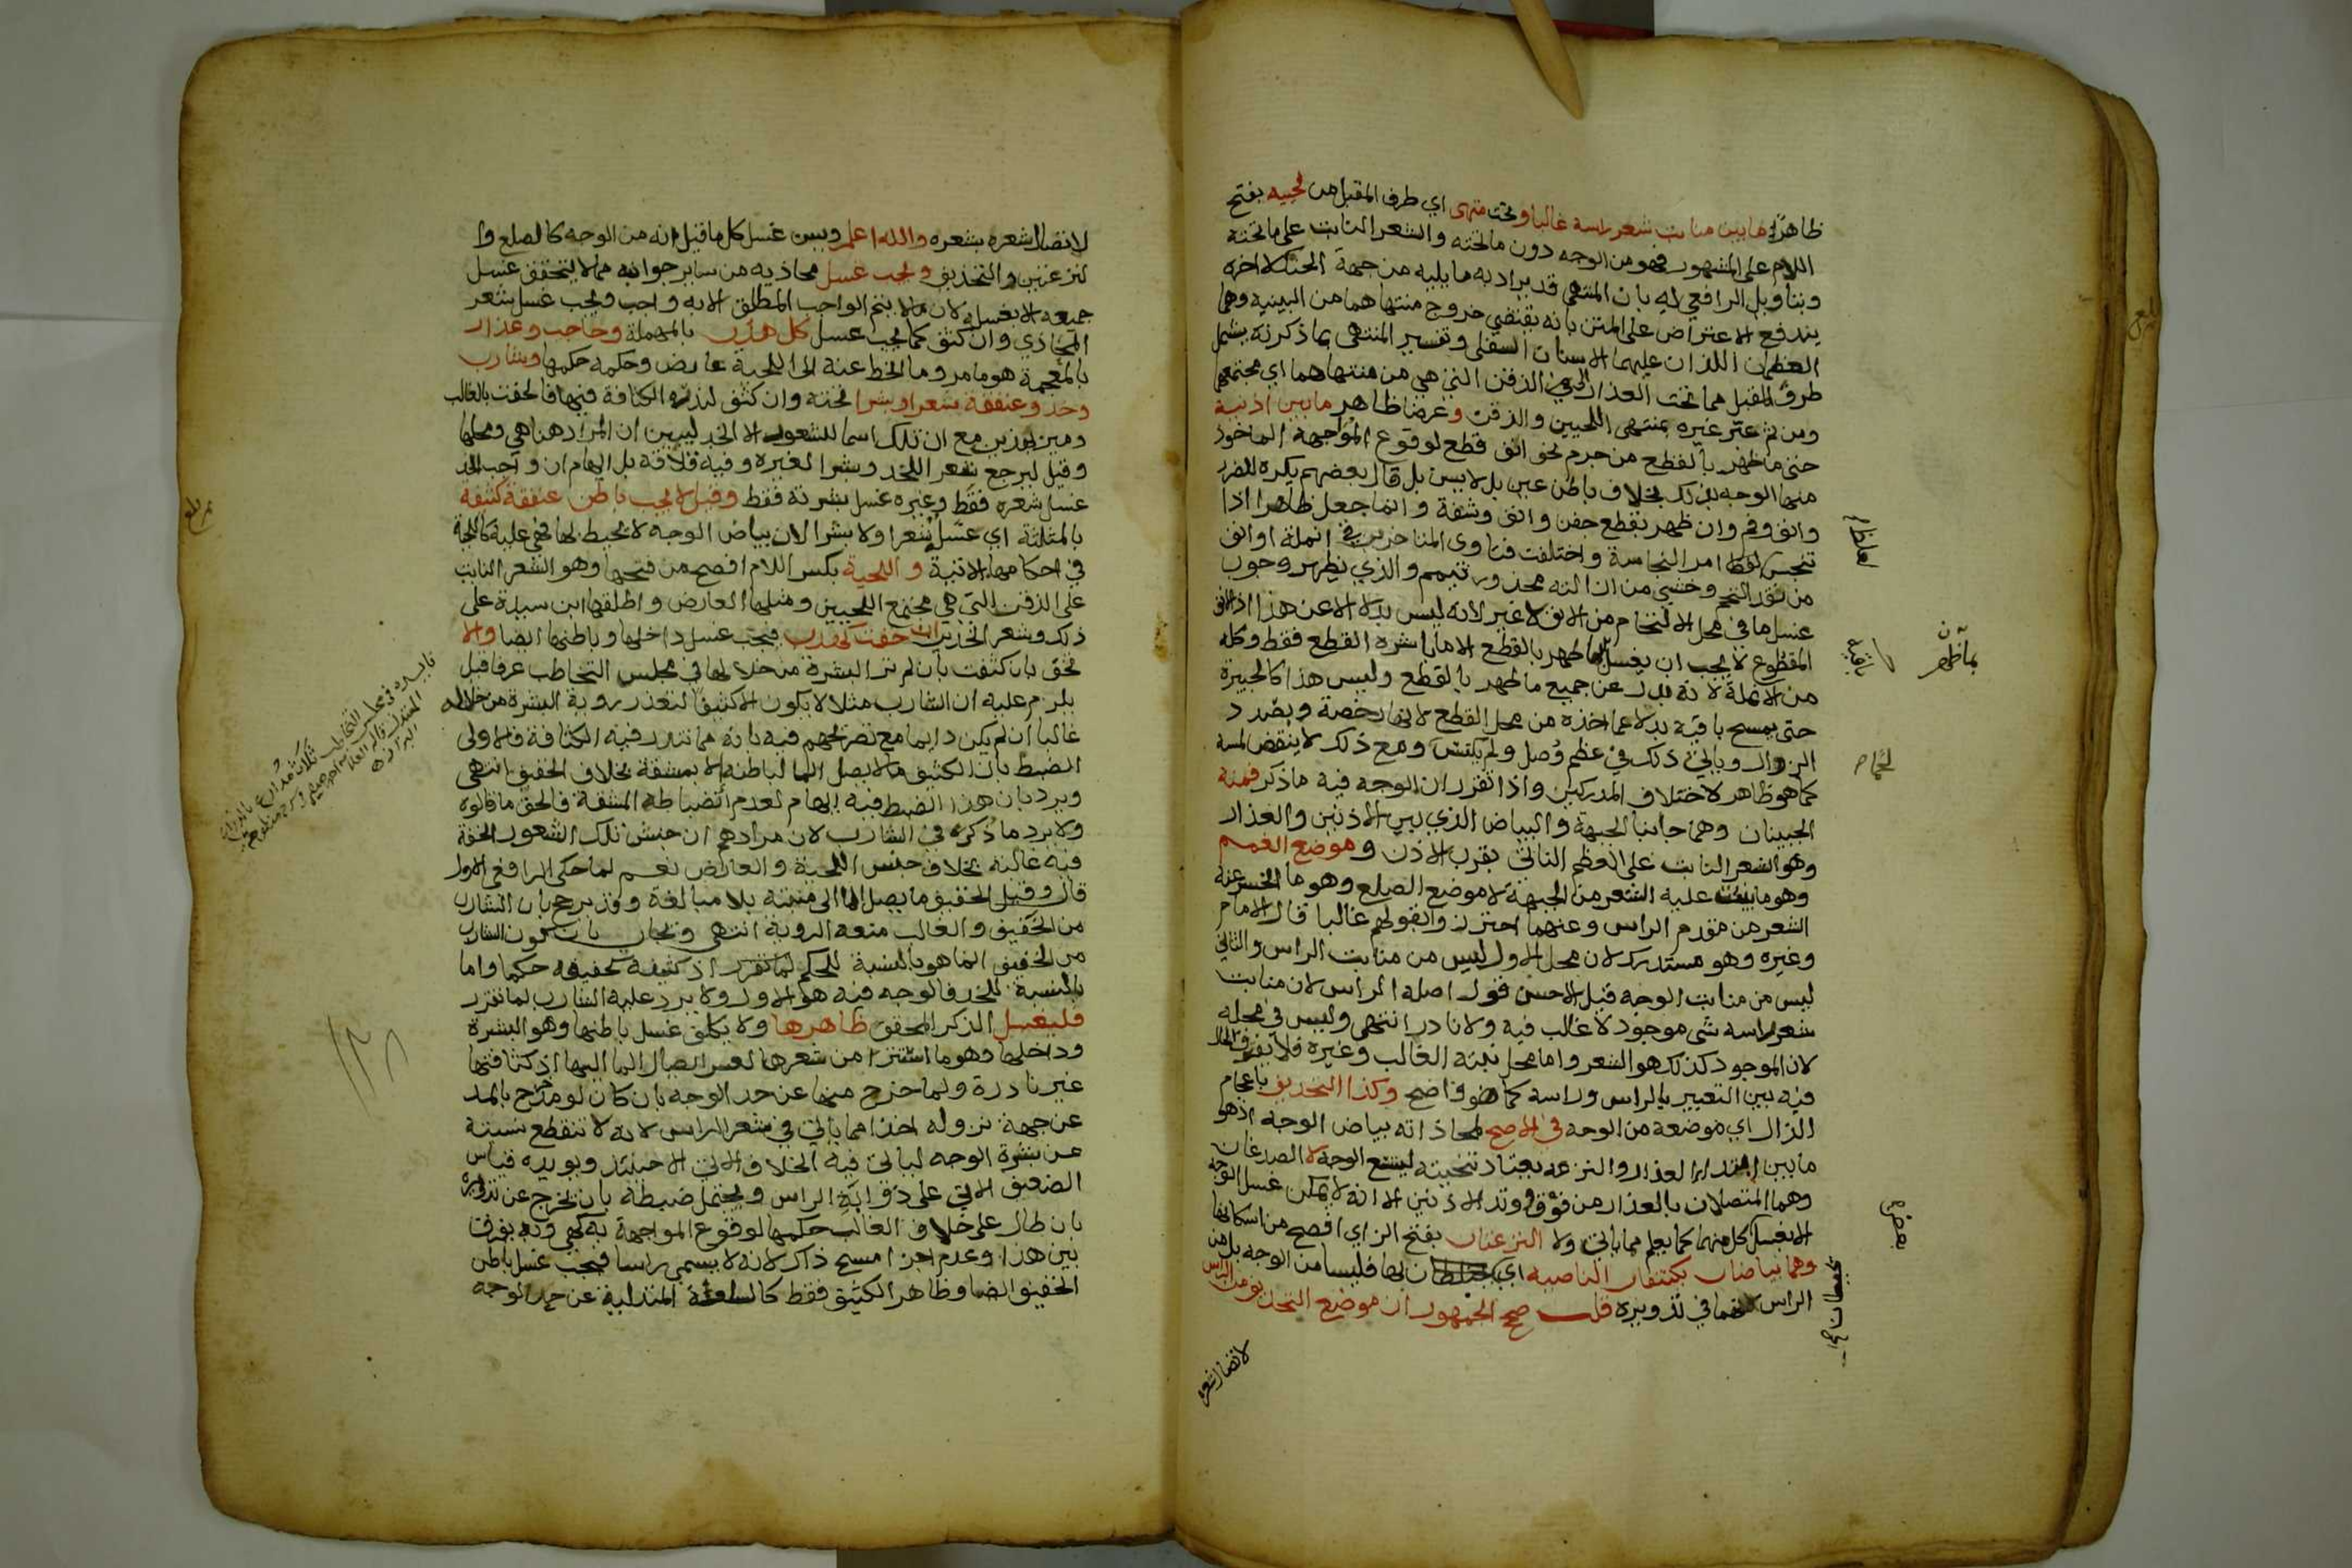 ظاهرا ما بين منابت شعر راسه غالبا وتحت منتهى اي طرف المقبل من لحييه بفتح
اللام على المشهور فهو من الوجه دون ما تحته والشعر النابت على ما تحته
وبتاويل الرافعي له بان المنتهى قد يراد به ما يليه من جهة الحنك لا اخره
يندفع الاعتراض على المتن بانه يقتضي خروج منتهاهما من البينية وهما
العظمان اللذان عليهما الاسنان السفلى وتفسير المنتهى بما ذكرته يشمل
طرف المقبل مما تحت العذار الى الذقن التي هي من منتهاهما اي مجتمعهما
ومن ثم عبر غيره بمنتهى اللحيين والذقن وعرضا ظاهر ما بين اذنيه
حتى ما ظهر بالقطع من جرم نحو انف قطع لوقوع المواجهة الماخوذ
منها الوجه بذلك بخلاف باطن عين بل لا يسن بل قال بعضهم يكره للضرر
وانف وفم وان ظهر بقطع جفن وانف وشفة وانما جعل ظاهرا اذا
تنجس لغلظ امر النجاسة واختلفت فتاوى المتاخرين في انملة او انف
من نقد التحم وخشي من ازالته محذور تيمم والذي يظهر وجوب
غسل ما في محل الالتحام من الانف لا غير لانه ليس بدلا الا عن هذا اذ الانف
المقطوع لا يجب ان يغسل مما ظهر بالقطع الا ما باشره القطع فقط وكله
من الانملة لانه بدل عن جميع ما ظهر بالقطع وليس هذا كالجبيرة
حتى يمسح باقيه بدلا عما اخذه من محل القطع لانها رخصة وبصدد
الزوال وياتي ذلك في عظم وصل ولم يكتس ومع ذلك لا ينقض لمسه
كما هو ظاهر لاختلاف المدركين واذا تقرر ان الوجه فيه ما ذكر فمنه
الجبينان وهما جانبا الجبهة والبياض الذي بين الاذنين والعذار
وهو الشعر النابت على العظم الناتئ بقرب الاذن وموضع الغمم
وهو ما ينبت عليه الشعر من الجبهة لا موضع الصلع وهو ما انحسر عنه
الشعر من مقدم الراس وعنهما احترزوا بقولهم غالبا قال الامام
وغيره وهو مستدرك لان محل الاول ليس من منابت الراس والثاني
ليس من منابت الوجه قيل الاحسن قول اصله الراس لان منابت
شعر راسه شي موجود لا غالب فيه ولا نادر انتهى وليس في محله
لان الموجود كذلك هو الشعر واما محل نبته الغالب وغيره فلا يفترق الحال
فيه بين التعبير بالراس وراسه كما هو واضح وكذا التحذيف باعجام
الذال اي موضعه من الوجه في الاصح لمحاذاته بياض الوجه اذ هو
ما بين ابتداء العذار والنزعة يعتاد تنحيته ليتسع الوجه لا الصدغان
وهما المتصلان بالعذار من فوق وتد الاذنين الا انه لا يمكن غسل الوجه
الا بغسل كل منهما كما يعلم مما ياتي ولا النزعتان بفتح الزاي افصح من اسكانها
وهما بياضان يكتنفان الناصية اي لها فليسا من الوجه بل من
الراس لانهما في تدويره قلت صحح الجمهور ان موضع التحذيف من الراس
لاتصال شعره
لاتصال شعره بشعره والله اعلم ويسن غسل كل ما قيل انه من الوجه كالصلع وا
لنزعتين والتحذيف ويجب غسل محاذيه من ساير جوانبه مما لا يتحقق غسل
جميعه الا بغسله لان ما لا يتم الواجب المطلق الا به واجب ويجب غسل شعر
المحاذي وان كثف كما يجب غسل كل هدب بالمهملة وحاجب وعذار
بالمعجمة هو ما مر وما انحط عنه الى اللحية عارض وحكمه حكمها وشارب
وخد وعنفقة شعرا وبشرا تحته وان كثف لندرة الكثافة فيها فالحقت بالغالب
ومين بوزين مع ان تلك اسما للشعور الا الخد ليبين ان المراد هنا هي ومحلها
وقيل ليرجع شعر اللخد وبشرا لغيره وفيه قلاقة بل ايهام ان واجب الخد
غسل شعره فقط وغيره غسل بشرته فقط وقيل لا يجب باطن عنفقة كثيفة
بالمثلثة اي غسله شعرا ولا بشرا لان بياض الوجه لا يحيط بها فهي عليه كاللحية
في احكامها الاتية واللحية بكسر اللام افصح من فتحها وهو الشعر النابت
على الذقن التي هي مجتمع اللحيين ومثلها العارض واطلقها ابن سيده على
ذلك وشعر الخدين ان خفت كهدب فيجب غسل داخلها وباطنها ايضا والا
تخف بان كثفت بان لم تر البشرة من خلالها في مجلس التخاطب عرفا قيل
يلزم عليه ان الشارب مثلا لا يكون الا كثيفا لتعذر روية البشرة من خلاله
غالبا ان لم يكن دايما مع تصريحهم فيه بانه مما تندر فيه الكثافة فالاولى
الضبط بان الكثيف ما لا يصل الما لباطنه الا بمشقة بخلاف الخفيف انتهى
ويرد بان هذا الضبط فيه ايهام لعدم انضباطه المشقة فالحق ما قالوه
ولا يرد ما ذكره في الشارب لان مرادهم ان جنس تلك الشعور الخفة
فيه غالبة بخلاف جنس اللحية والعارض نعم لما حكى الرافعي الاول
قال وقيل الخفيف ما يصل الما الى منبته بلا مبالغة وقد يرجح بان الشارب
من الخفيف والغالب منعه الروية انتهى ويجاب بان كون الشارب
من الخفيف انما هو بالنسبة للحكم لما تقرر اذ كثيفه كخفيفه حكما واما
بالنسبة للحد فالوجه فيه هو الاول ولا يرد عليه الشارب لما تقرر
فليغسل الذكر المحقق ظاهرها ولا يكلف غسل باطنها وهو البشرة
وداخلها وهو ما استتر من شعرها لعسر ايصال الما اليها اذ كثافتها
غير نادرة ولما خرج منها عن حد الوجه بان كان لو مد خرج بالمد
عن جهة نزوله اخذا مما ياتي في شعر الراس لانه لا تنقطع نسبته
عن بشرة الوجه لياتي فيه الخلاف الاتي الا حينئذ ويويده قياس
الضعيف الاتي على ذوابة الراس ويحتمل ضبطه بان يخرج عن تدويره
بان طال على خلاف الغالب حكمها لوقوع المواجهة به كهي وبه يفرق
بين هذا وعدم اجزا مسح ذاك لانه لا يسمى راسا فيجب غسل باطن
الخفيف ايضا وظاهر الكثيف فقط كالسلعة المتدلية عن حد الوجه